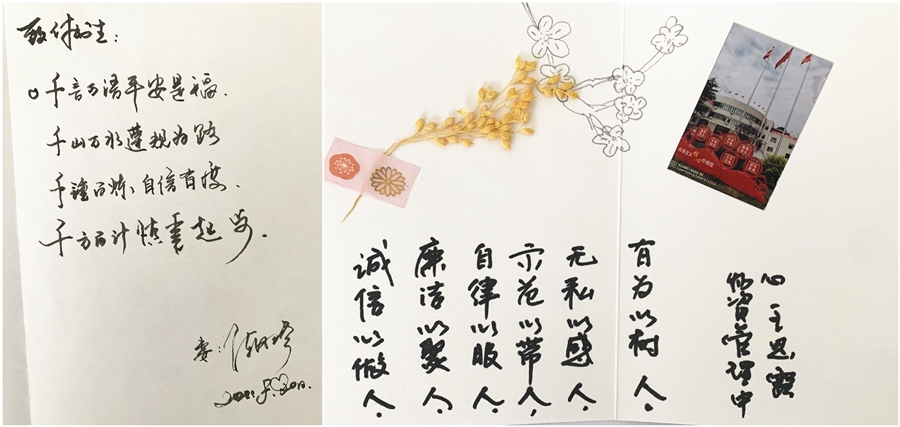 千言万语平安是福.
千山万水遵规为路
千锤百炼,自信有度.
千方百计慎重起步.
妻:
诚信以做人.
廉洁以聚人.
自律以服人.
示范以带人.
无私以感人.
有为以树人.
物资管理中
心 王思